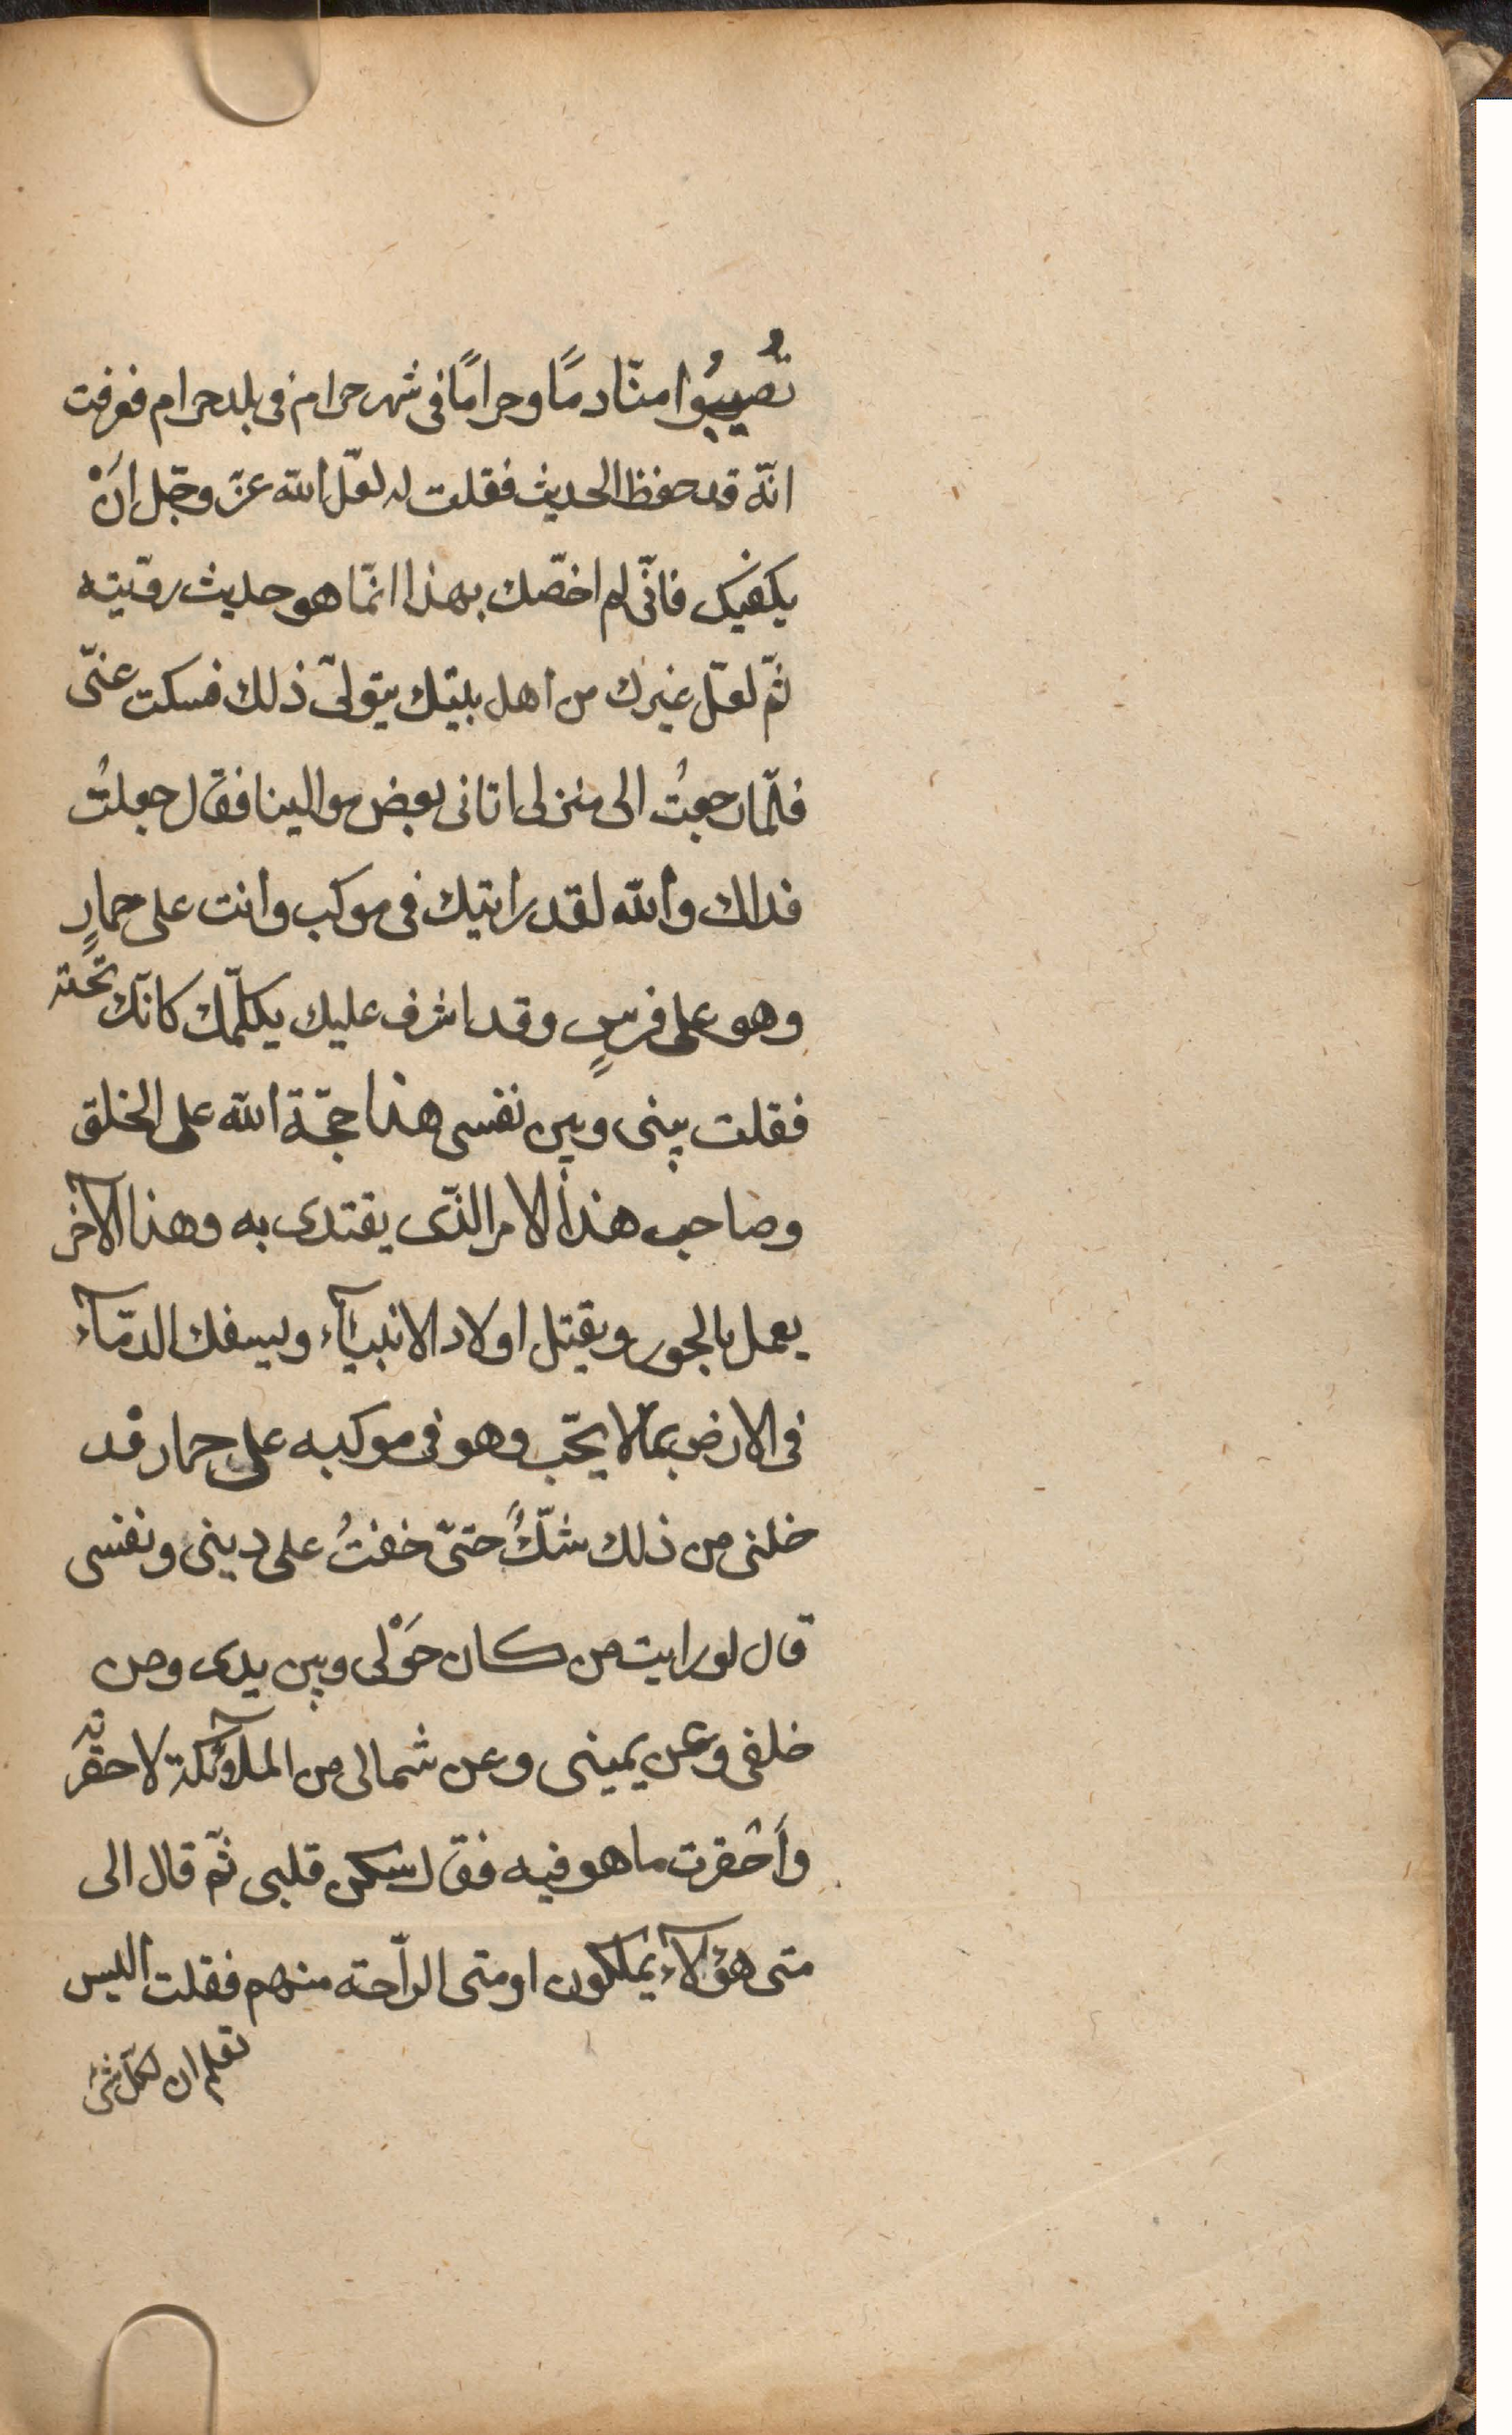 تُصيبُوا منّا دمًا وحرامًا فى شهر حرام فى بلد حرام فعرفت
انّه قد حفظ الحديث فقلت له لعلّ الله عزّ وجّل اَنْ
يكفيك فانّى لم اخصّك بهذا انمّا هو حديث روّيته
ثمّ لعلّ غيرك من اهل بيتك يتولّى ذلك فسكت عنّى
فلمّا رجعتُ الى منزلى اتانى بعض موالينا فقال جعلتُ
فداك والله لقد رايتك فى موكب وانت على حمارٍ
وهو على فرسٍ وقد اشرف عليك يكلّمك كانّك تحته
فقلت بينى وبين نفسى هذا حجّة الله على الخلق
وصاحب هذا الامر الذّى يقتدى به وهذا الآخر
يعمل بالجور ويقتل اولاد الانبيآء ويسفك الدمّآء
فى الارض بما لا يحّب وهو فى موكبه على حمار فد
خلنى من ذلك شكٌّ حتىّ خفتُ على دينى ونفسى
قال لو رايت من كان حَوْلى وبين يدى ومن
خلفى وعن يمينى وعن شمالى من الملآئكة لاحقرته
واَحْقرت ما هو فيه فقال سكن قلبى ثمّ قال الى
متى هؤلآء يملكون او متى الرّاحته منهم فقلت اليس
تعلم ان لكلّ شئ